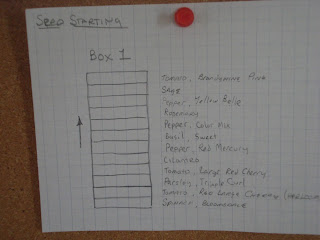 Seed Starting
Box 1
Tomato, Brandywine Pink
Sage
Pepper, Yellow Belle
Rosemary
Pepper, Color Mix
Basil, Sweet
Pepper, Red Mercury
Cilantro
Tomato, Large Red Cherry
Parsley, Triple Curl
Tomato, Red Large Cherry
Spinach, Bloomsdale